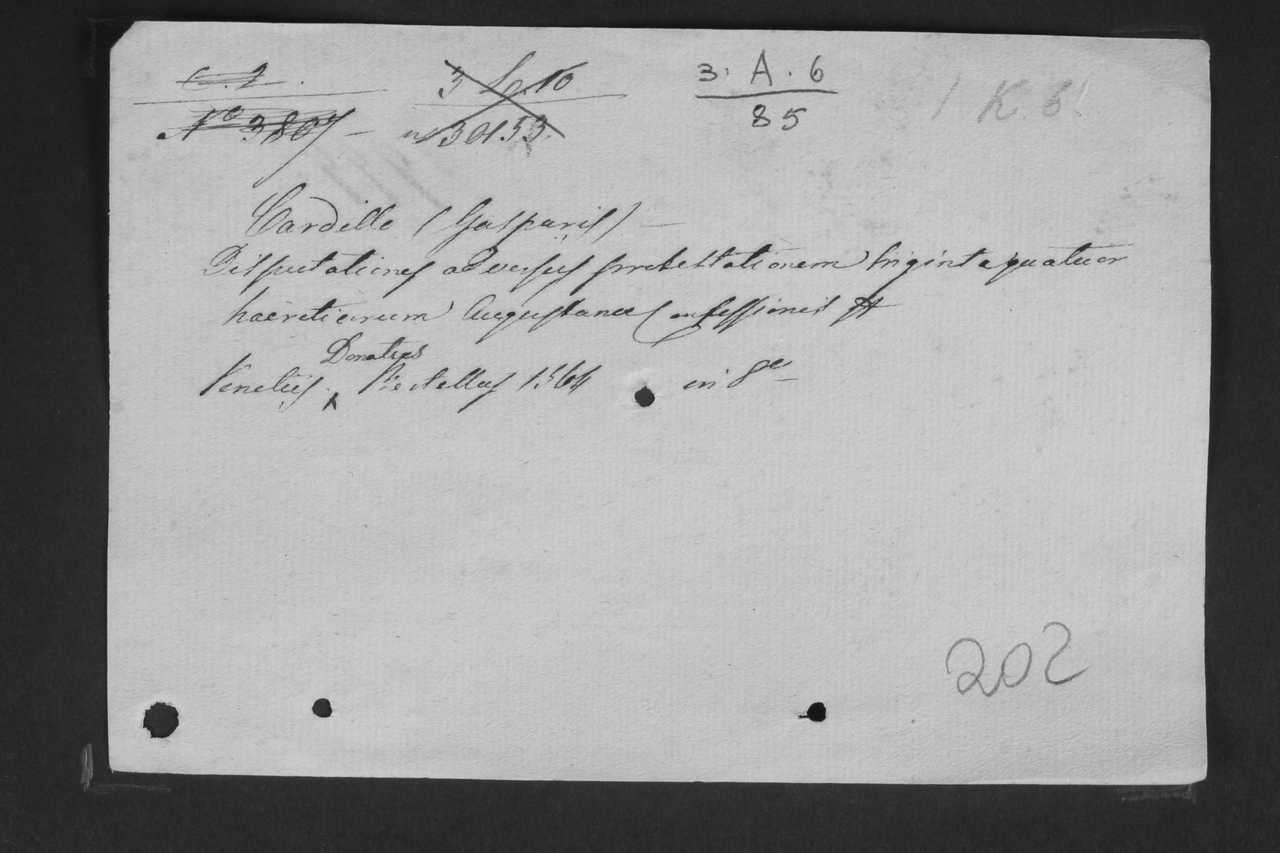 C. 2.
Nº 3807 —
3 L 10
nº 30153.
3. A. 6
85
1 K. 6.
Cardillo (Gasparis) —
Disputationes adversus protestationem triginta quatuor
haereticorum Augustanae Confessionis
Donatus
Venetiis, 1564 in 8º —
202